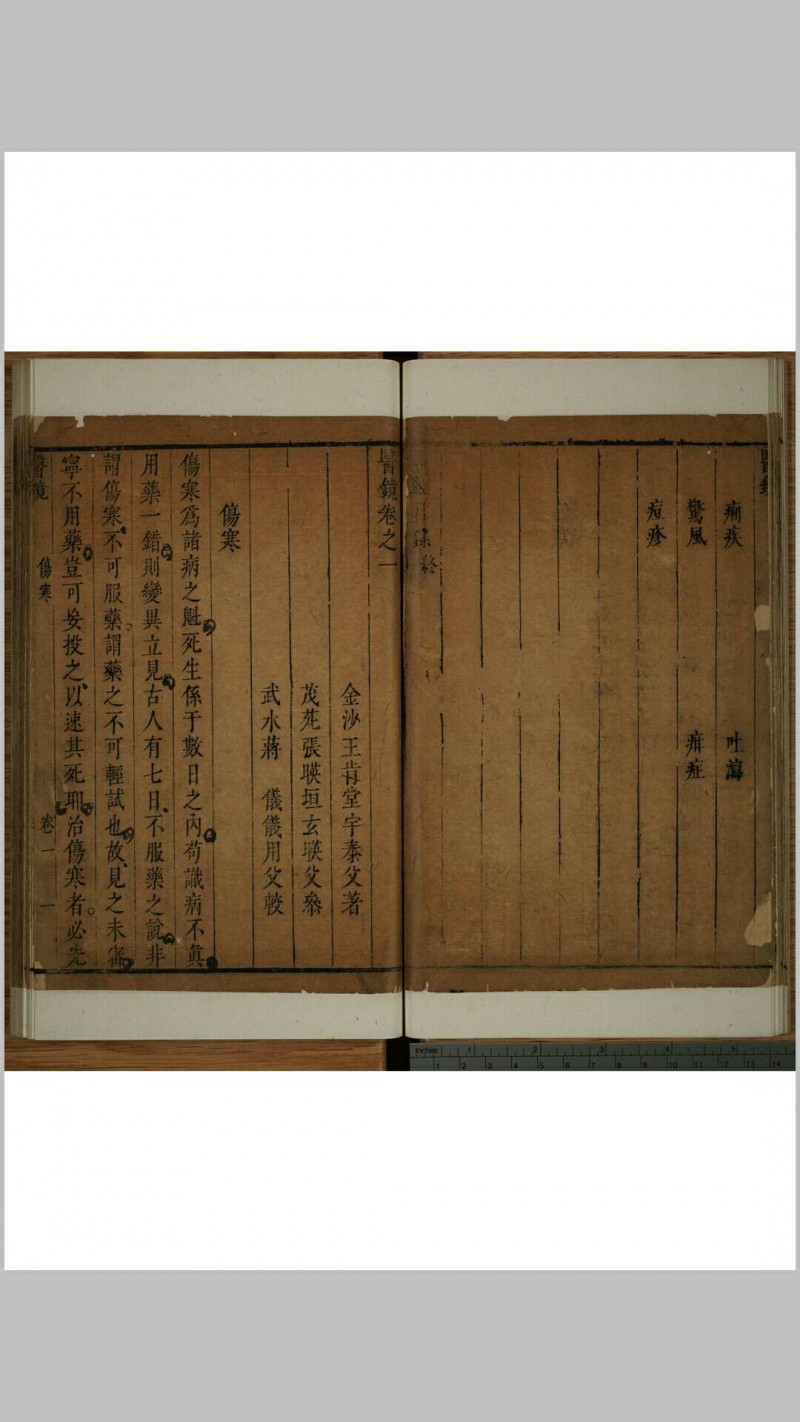 醫鏡
痢疾 吐瀉
驚風 疳症
痘疹
錄終
醫鏡卷之一
金沙王肯堂宇泰父著
茂苑張暎垣玄暎父叅
武水蔣 儀儀用父較
傷寒
傷寒爲諸病之魁死生係于數日之內苟識病不真
用藥一錯則變異立見古人有七日不服藥之說非
謂傷寒不可服藥謂藥之不可輕試也故見之未審
寧不用藥豈可妄投之以速其死耶治傷寒者必先
醫鏡 傷寒 卷一 一
Inches 1 2 3 4 5
1 2 3 4 5 6 7 8 9 10 11 12 13 14